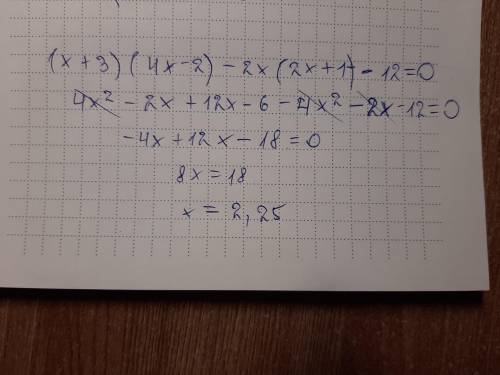 (x + 3) (4x - 2) - 2x (2x + 1) - 12 = 0
4x² - 2x + 12x - 6 - 4x² - 2x - 12 = 0
- 4x + 12x - 18 = 0
8x = 18
x = 2,25